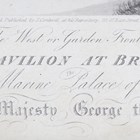 The West or Garden Front
AVILION AT BR
Marine Palace of
Majesty George t